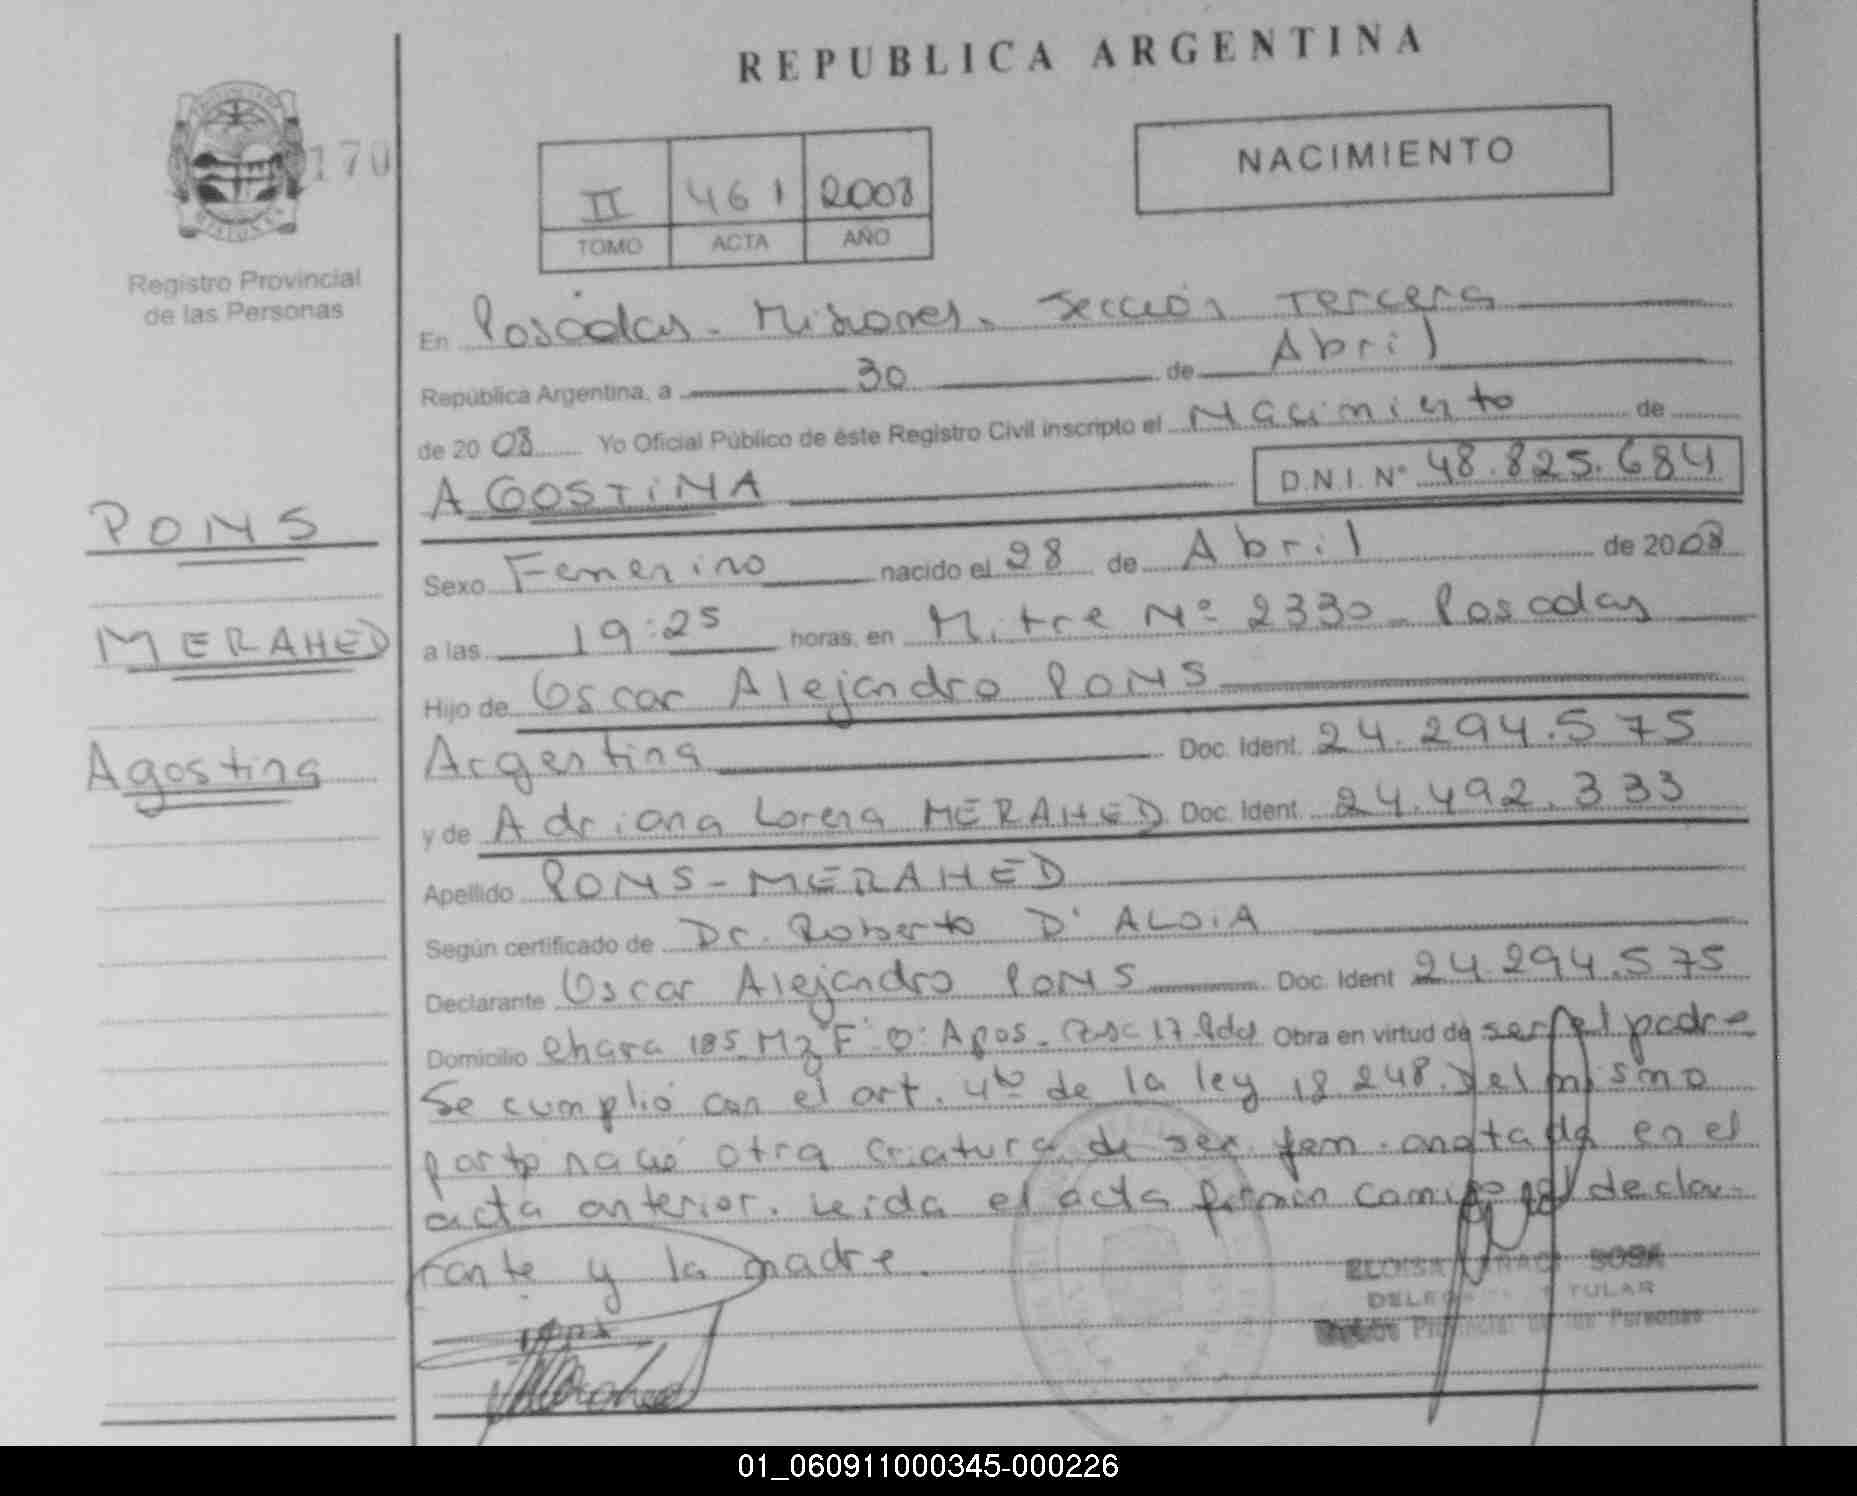 REPUBLICA ARGENTINA
170
NACIMIENTO
II 461 2008
TOMO ACTA AÑO
Registro Provincial
de las Personas
En Posadas - Misiones. Sección Tercera
República Argentina, a 30 de Abril
de 2008 Yo Oficial Público de éste Registro Civil inscripto el Nacimiento de
AGOSTINA D.N.I. Nº 48.825.684
PONS
MERAHED
Agostina
Sexo Femenino nacido el 28 de Abril de 2008
a las 19:25 horas, en Mitre Nº 2330 - Posadas
Hijo de Oscar Alejandro PONS
Argentina Doc. Ident. 24.294.575
y de Adriana Lorena MERAHED Doc. Ident. 24.492.333
Apellido PONS - MERAHED
Según certificado de Dr. Roberto D'ALOIA
Declarante Oscar Alejandro PONS Doc. Ident 24.294.575
Domicilio chara 185 Mz F Obra en virtud de ser el padre
Se cumplió con el art. 4to de la ley 18.248. Del mismo
parto nació otra criatura de sex. fem. anotada en el
acta anterior. Leida el acta firman conmigo el decla-
rante y la madre.
ELOISA SOSA
TITULAR
Registro Provincial de las Personas
01_060911000345-000226